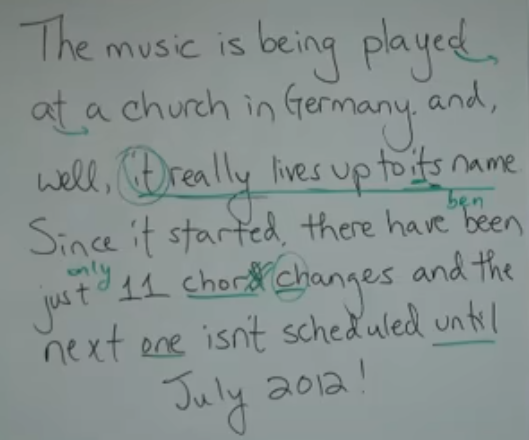 The music is being played
at a church in Germany. and,
well, it really lives up to its name
ben
Since it started, there have been
only
just 11 chord changes and the
next one isn't scheduled until
July 2012!